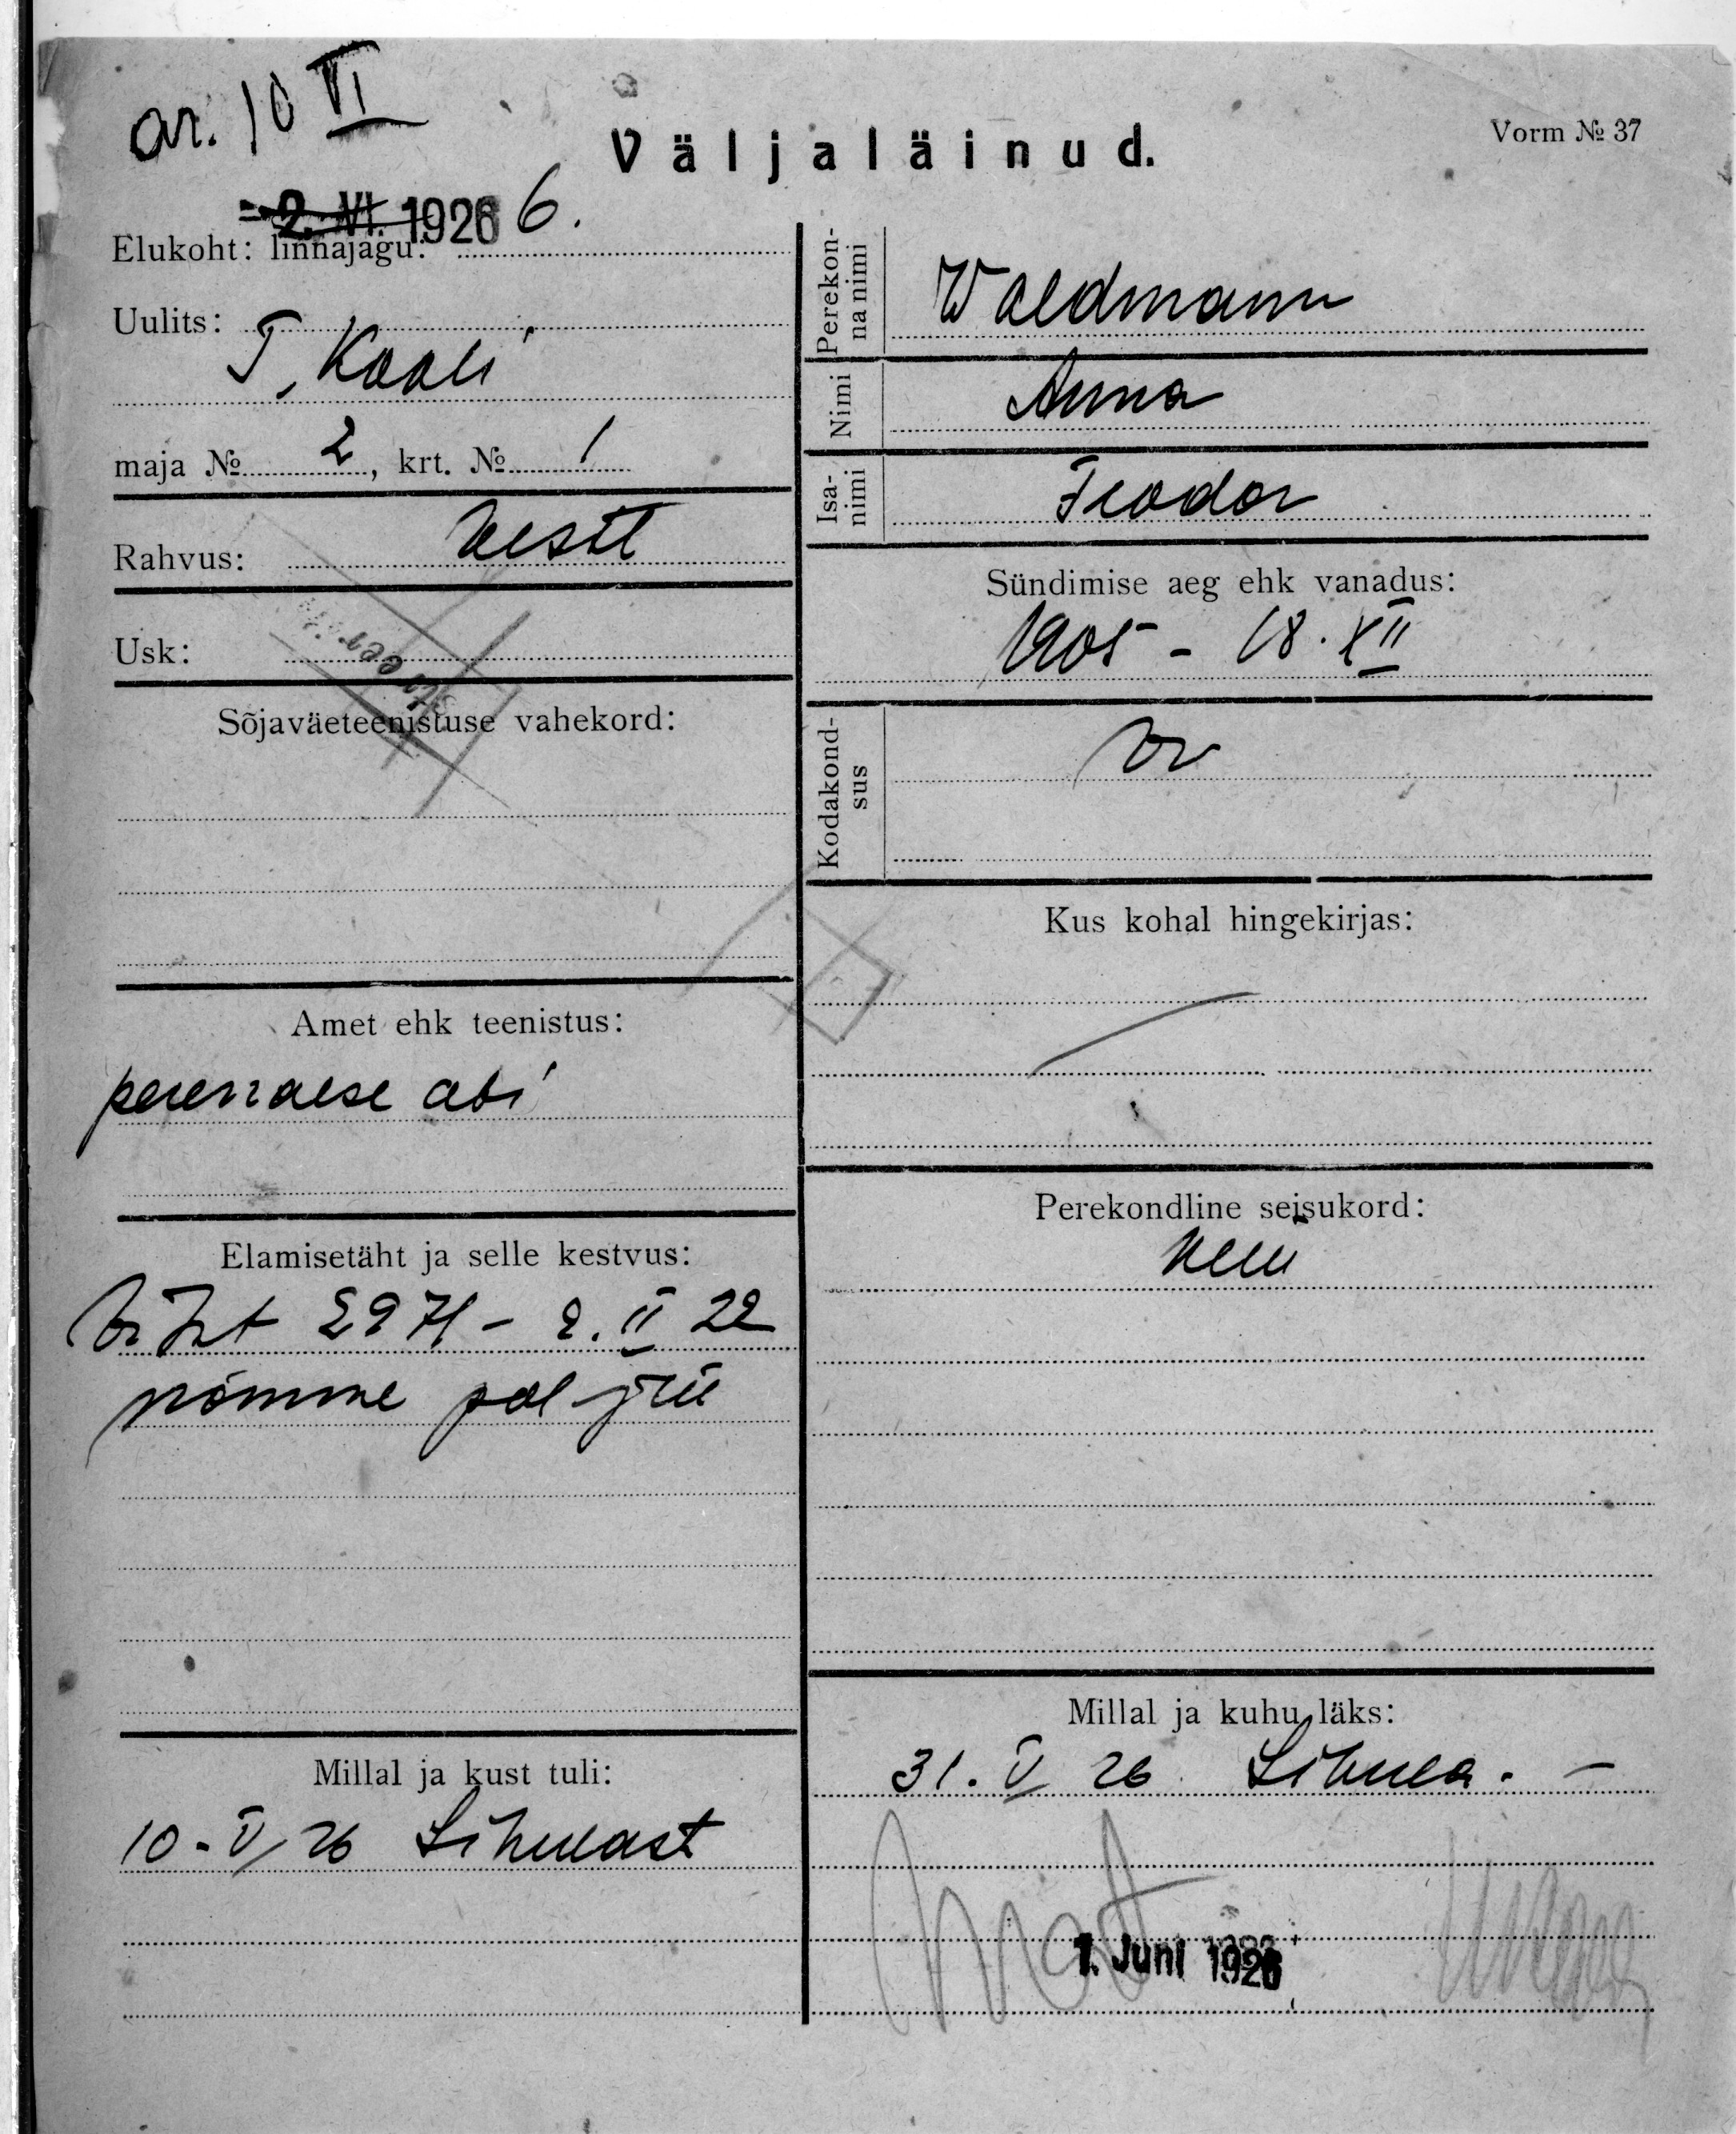 ar. 10 VI
Väljaläinud.
Vorm № 37
2. VI. 1926
6.
Elukoht: linnajagu:
Uulits:
T. Kooli
maja № 2, krt. № 1
Rahvus: eesti
Usk:
Sõjaväeteenistuse vahekord:
Amet ehk teenistus:
perenaese abi
Elamisetäht ja selle kestvus:
2971 - 2. II 22
nõmme pol
Millal ja kust tuli:
10-V 26 Lihulast
Perekon-
na nimi
Waldmann
Nimi
Anna
Isa-
nimi
Feodor
Sündimise aeg ehk vanadus:
1905 - 18. XII
Kodakond-
sus
Kus kohal hingekirjas:
Perekondline seisukord:
Millal ja kuhu läks:
31. V 26 Lihula. -
1. Juni 1926